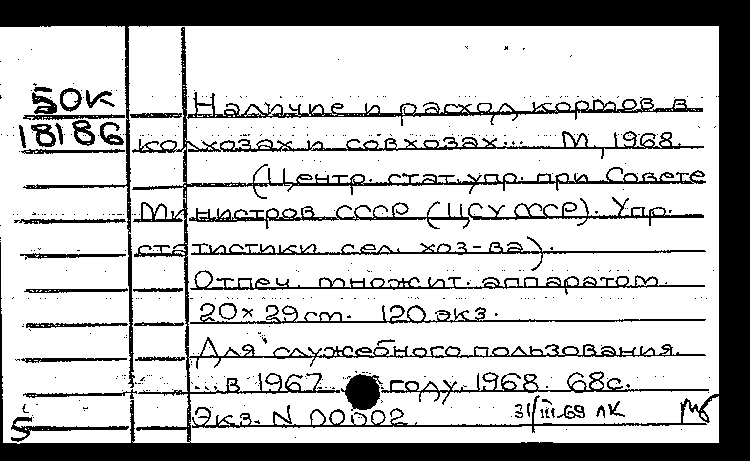 50К
18186
Наличие и расход кормов в
колхозах и совхозах... М, 1968.
(Центр. стат. упр. при Совете
Министров СССР (ЦСУ СССР). Упр.
статистики сел. хоз-ва).
Отпеч. множит. аппаратом.
20×29 cm. 120 экз.
Для служебного пользования.
...в 1967 году. 1968. 68с.
Экз. N 00002.
31/III-69 ЛК
5